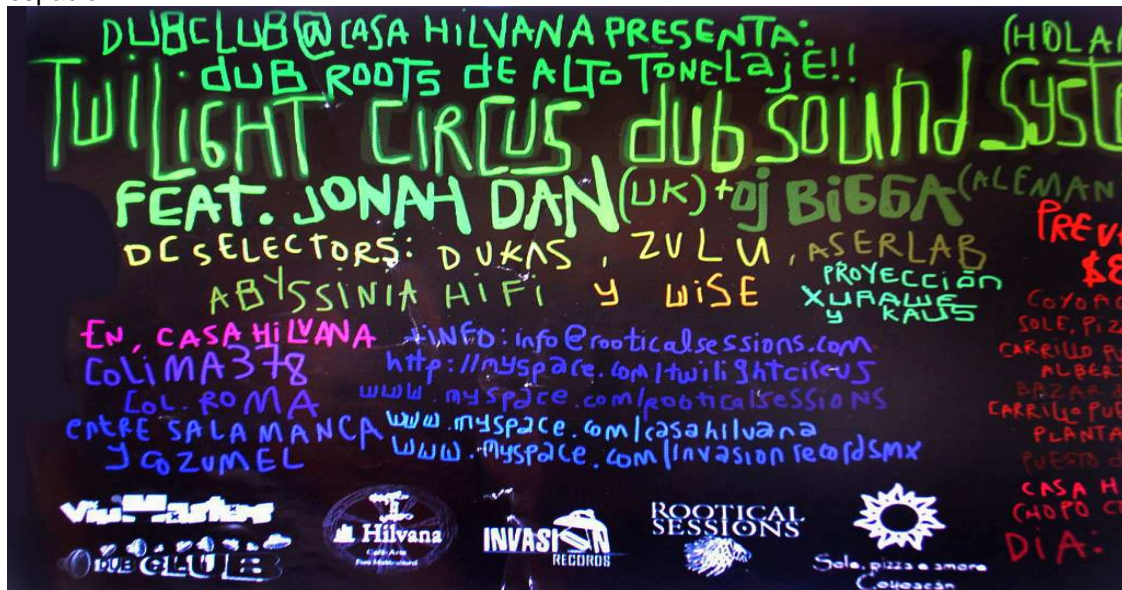 DUBCLUB@CASA HILVANA PRESENTA:
dUB ROOTS dE ALTO TONELajE!!
(HOLAN
TWILIGHT CIRCUS dub SOUNd SYSTE
FEAT. JONAH DAN (UK) + dj BiGGA (ALEMAN
DC SELECTORS: DUKAS, ZULU, ASERLAB
ABYSSINIA HIFI y WISE
PROYECCIÓN
XURAWE
y KAUS
EN, CASA HILVANA
COLIMA 378
COL. ROMA
ENTRE SALAMANCA
y COZUMEL
+INFO: info@rooticalsessions.com
http://myspace.com/twilightcircus
www.myspace.com/rooticalsessions
www.myspace.com/casahilvana
www.myspace.com/invasionrecordsmx
PREV
$8
COYOAC
SOLE, PIZ
CARRILLO PU
ALBERT
BAZAR d
CARRILLO PUE
PLANTA
PUESTO d
CASA H
CHOPO C
DIA:
DUB CLUB
Hilvana
Café-Arte
Foro Multicultural
INVASION
RECORDS
ROOTICAL
SESSIONS
Sole, pizza e amore
Coyoacán